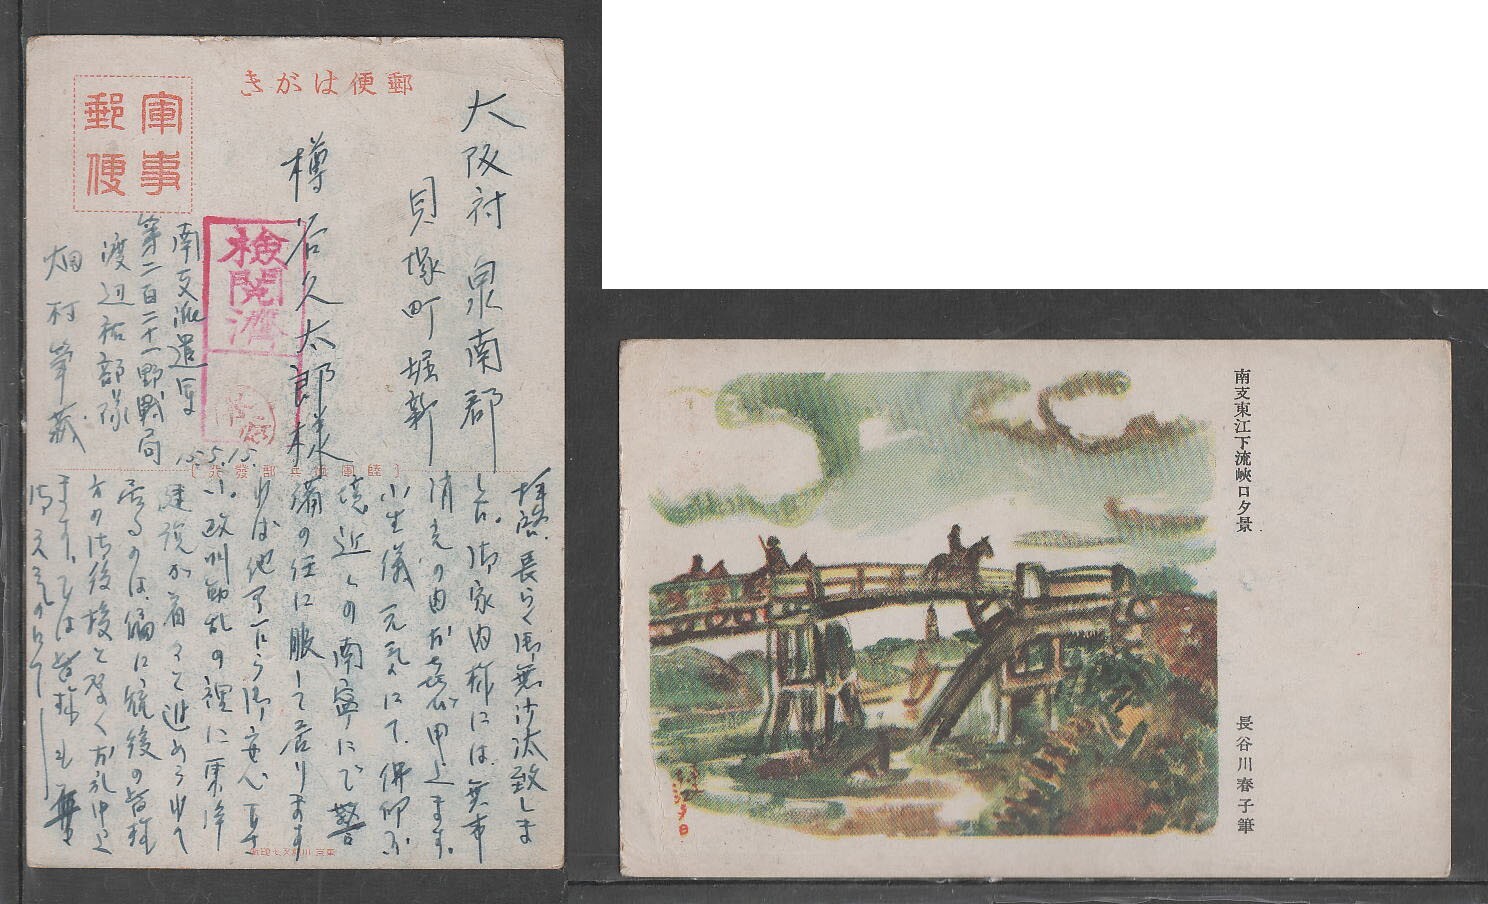 郵便はがき
軍事
郵便
大阪府泉南郡
貝塚町堀新
樽谷久太郎様
検閲済
南支派遣軍
第二百二十一野戦局
渡辺祐部隊
畑村
15.5.15.
拝啓、長らく御無沙汰致しま
した。御家内様には無事
消光の由お喜び申上ます。
小生儀元気にて、仏印
境近くの南寧にて警
備の任に服して居ります
れば他事
欧州動乱の裡に東洋
建設が着々と進められて
居るのは偏に銃後の皆様
方の御後援と
ます。では皆様も
南支東江下流峡口夕景
長谷川春子筆